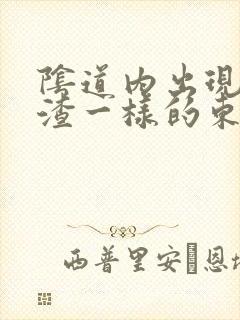 陰道内出現
渣一樣的東
西普里安·恩坎